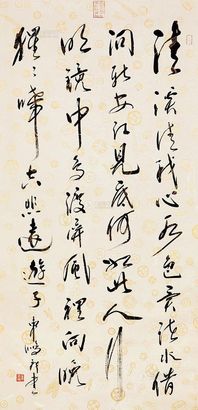 清溪清我心水色異諸水借
問新安江見底何如此人行
明鏡中鳥渡屏風裡向晚
猩〻啼空悲遠遊子